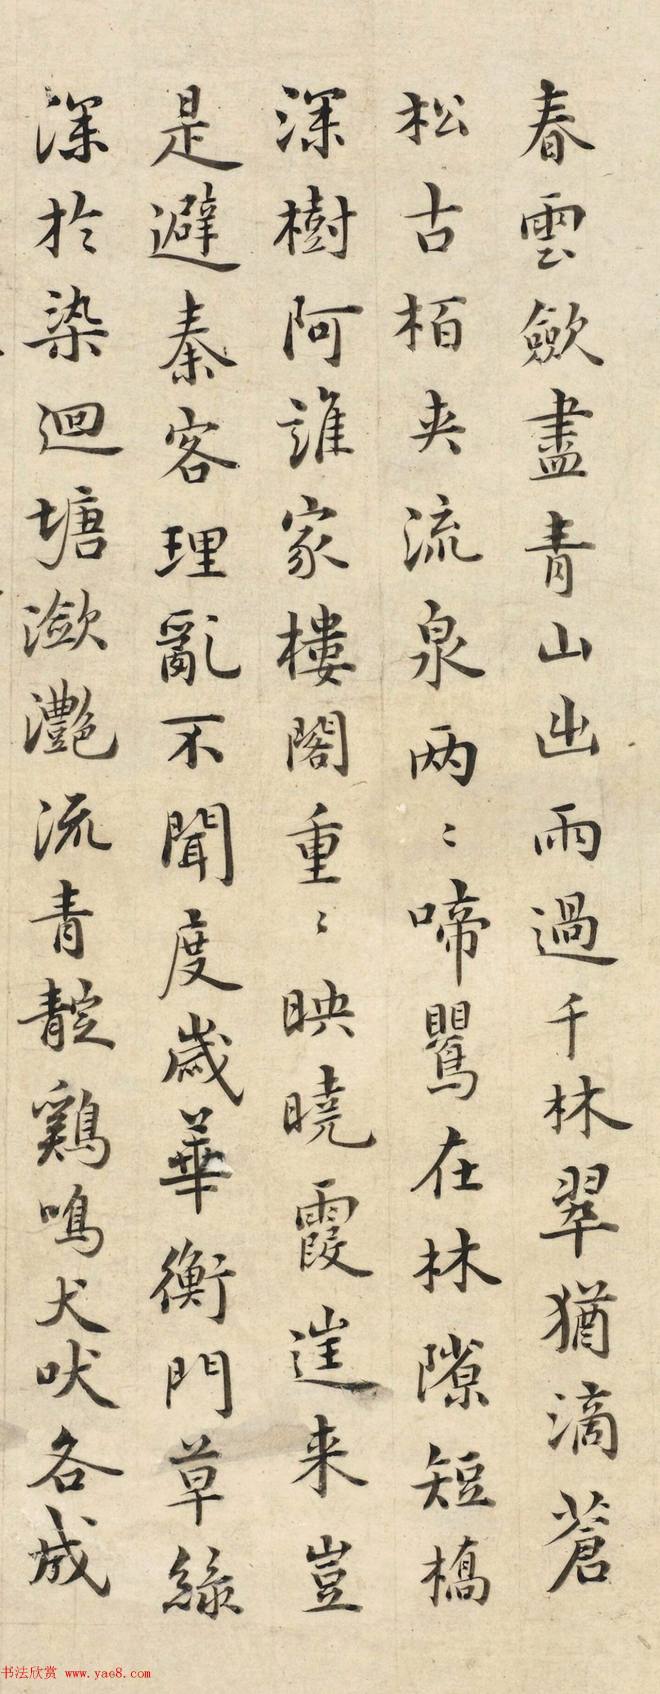 春雲歛盡青山出雨過千林翠猶滴蒼
松古栢夹流泉两〻啼鸎在林隙短橋
深樹阿誰家樓閣重〻映曉霞𨓏来豈
是避秦客理亂不聞度歲華衡門草緑
深於染迴塘潋灧流青靛鷄鳴犬吠各成
书法欣赏 www.yac8.com